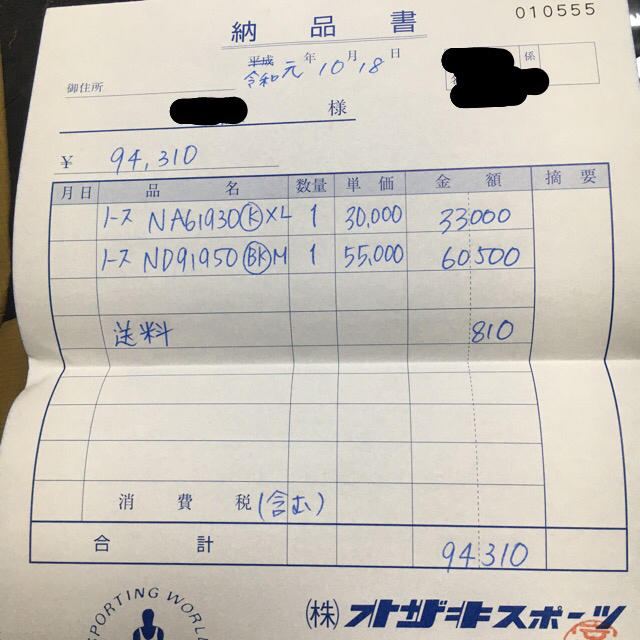 010555
納品書
平成
令和元年10月18日
係
御住所
様
¥ 94,310
月日 品名 数量 単価 金額 摘要
ノース NA61930 Ⓚ XL 1 30,000 33000
ノース ND91950 BK M 1 55,000 60500
送料 810
消費税 (含む)
合計 94310
SPORTING WORLD
(株)オザキスポーツ